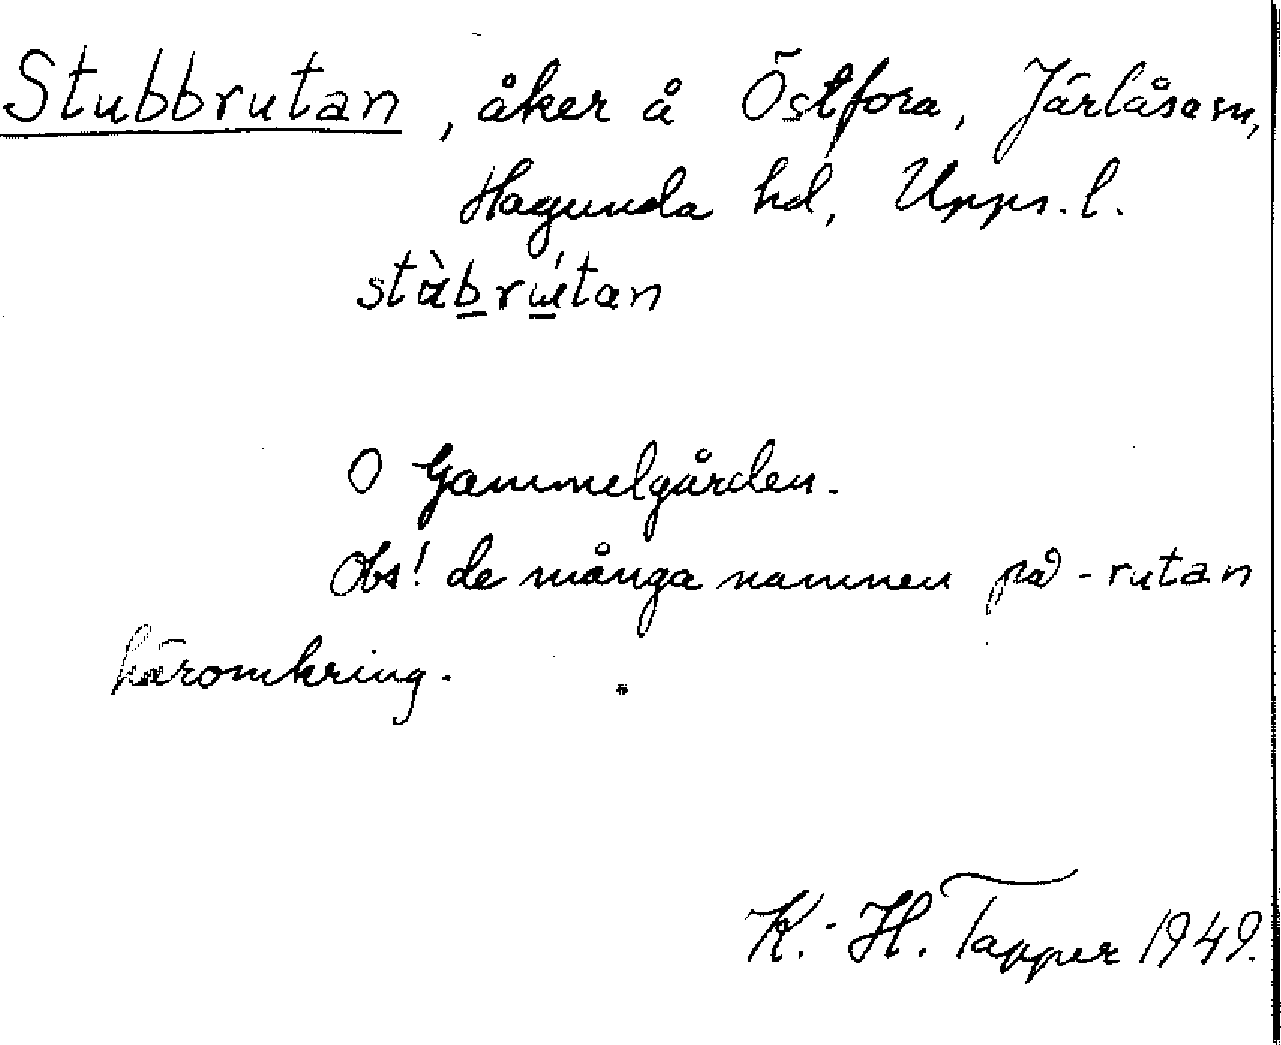 Stubbrutan, åker å Östfora, Järlåsa sn,
Hagunda hd, Upps. l.
O Gammelgården.
Obs! de många namnen på -rutan
häromkring.
K.-H. Tapper 1949.